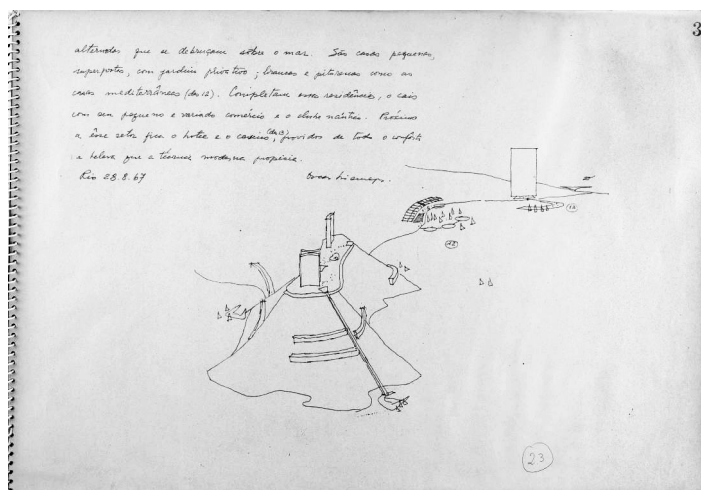 3
alternadas que se debruçam sobre o mar. São casas pequenas,
superpostas, com jardim privativo; brancas e pitorescas como as
casas mediterrâneas (des 12). Completam essas residências, o cais
com seu pequeno e variado comércio e o clube náutico. Próximos
a êsse setor fica o hotel e o casino, (des 13) providos de todo o conforto
e beleza que a técnica moderna propicia.
Rio 28.8.67 Oscar Niemeyer.
13
12
23